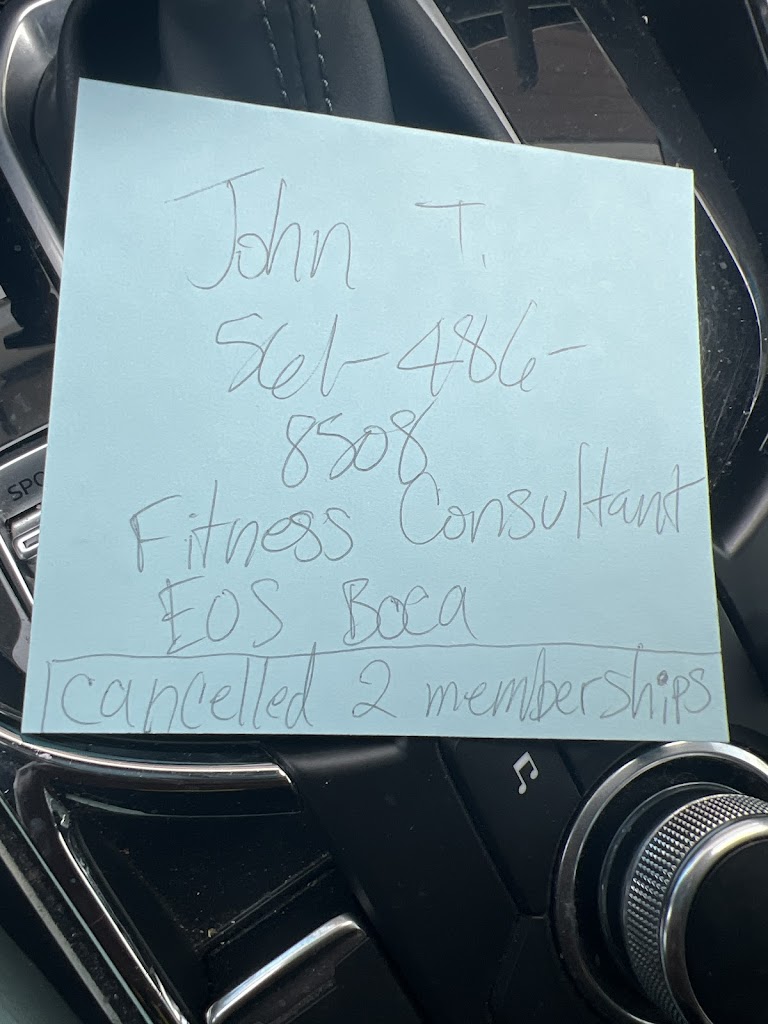 John T.
561-486-
8508
Fitness Consultant
EOS Boca
cancelled 2 memberships
SPO